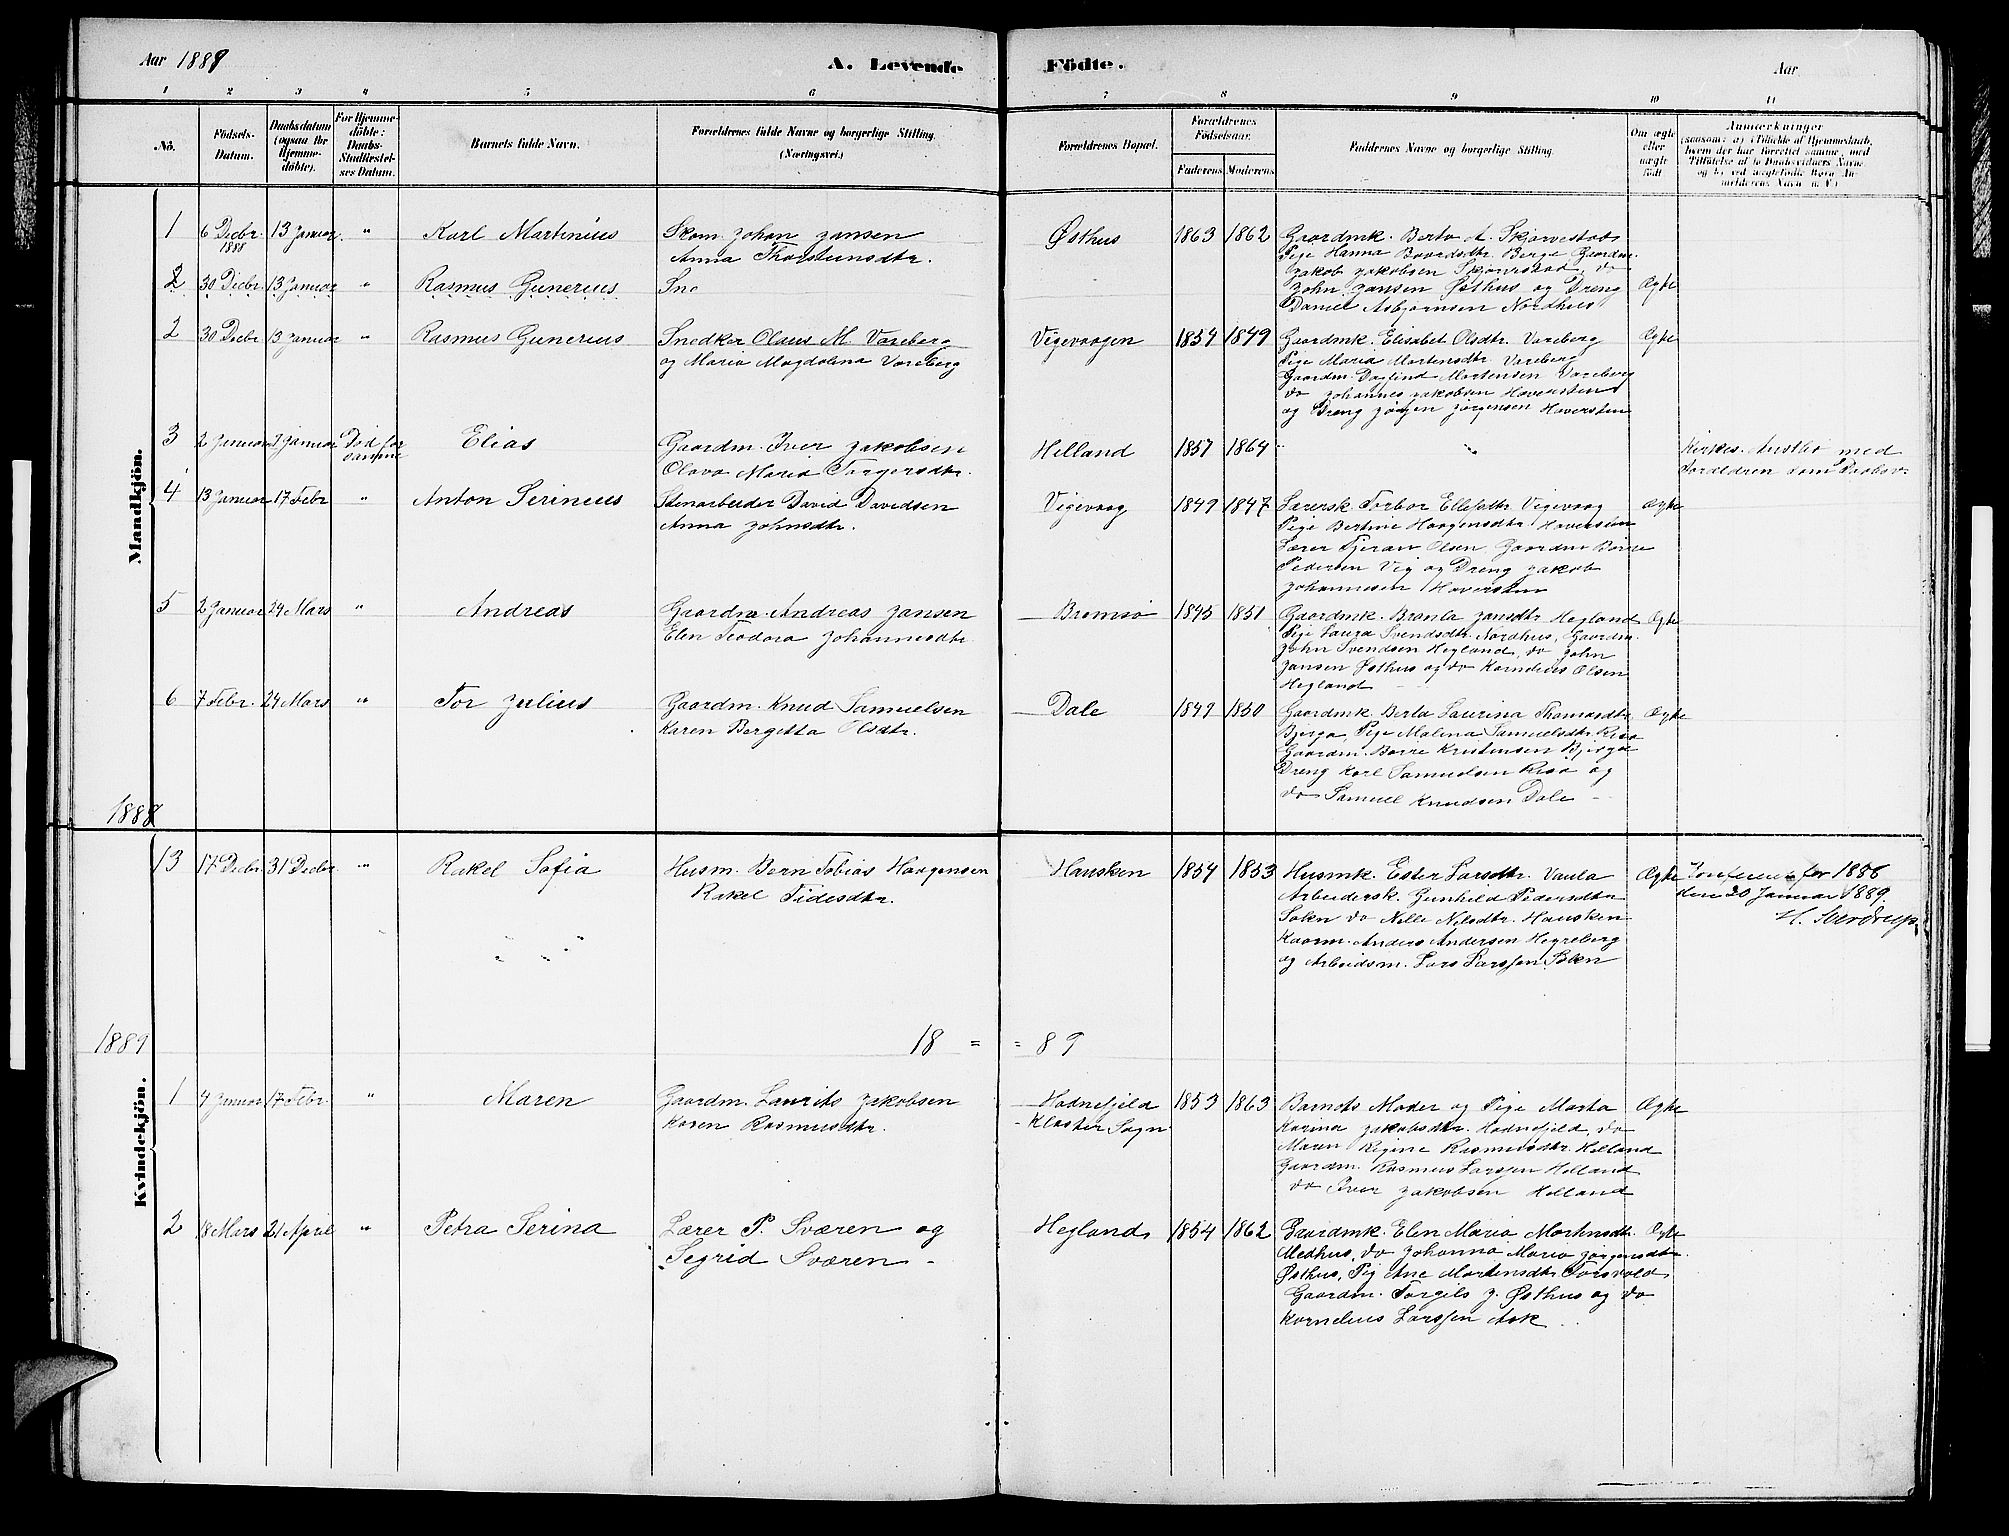 Aar 1889
A. Levende Födte.
Aar
1 2 3 4 5 6 7 8 9 10 11
No.
Födsels-Datum.
Daabsdatum (ogsaa for Hjemme-döbte).
For Hjemme-döbte: Daabs-Stadfæstelses Datum.
Barnets fulde Navn.
Forældrenes fulde Navne og borgerlige Stilling. (Næringsvei.)
Forældrenes Bopæl.
Forældrenes Födselsaar.
Faderens Moderens
Faddernes Navne og borgerlige Stilling
Om ægte eller uægte födt
Anmærkninger
Mandkjön.
1 6 Decbr. 1888 13 Januar " Karl Martinius Skom. Johan Jansen Østhus 1863 1862 Gaardmk. Berta A. Skjørvestad
Anna Thorsteinsdtr. Pige Hanna Baardsdtr. Berge Gaardm.
Jakob Jakobsen Skjørvestad, do
2 30 Decbr. 13 Januar " Rasmus Gunerius Sne John Jansen Østhus og Dreng Ægte
Daniel Asbjørnsen Nordhus
2 30 Decbr 13 Januar " Rasmus Gunerius Snedker Olaus M. Vareberg Vigevaagen 1854 1849 Gaardmk. Elisabet Olsdtr. Vareberg Ægte
og Maria Magdalena Vareberg Pige Maria Mortensdtr Vareberg
Gaardm. Dagfind Mortensen Vareberg
do Johannes Jakobsen Haversten
og Dreng Jørgen Jørgensen Haversten
3 2 Januar Januar Død før samme Elias Gaardm. Iver Jakobsen Helland 1857 1864 " Kirkes. Austbø med
Olava Maria Torgersdtr. Foreldren som
4 13 Januar 17 Febr " Anton Serinius Stenarbeider David Davidsen Vigevaag 1849 1847 Lærersk. Torbor Ellefsdtr Vigevaag Ægte
Anna Johnsdtr. Pige Bertine Haagensdtr Haversten
Lærer Tjeran Olsen, Gaardm Børre
Pedersen Vig og Dreng Jakob
Johannesen Haversten
5 2 Januar 24 Mars " Andreas Gaardm. Andreas Jansen Bremsø 1845 1851 Gaardmk. Bronla Jansdtr Hegland Ægte
Elen Teodora Johannesdtr Pige Laura Svendsdtr. Nordhus, Gaardm.
John Svendsen Hegland, do John
Jansen Østhus og do Kornelius Olsen
Hegland
6 7 Febr. 24 Mars " Tor Julius Gaardm. Knud Samuelsen Dale 1849 1850 Gaardmk. Berta Laurina Thomasdtr Ægte
Karen Bergitta Olsdtr. Bjerga, Pige Malina Samuelsdtr. Risa
Gaardm. Børre Kristensen Bjerga
Dreng Karl Samuelsen Risa og
do Samuel Knudsen Dale
1888
13 17 Decbr. 31 Decbr. " Rakel Sofia Husm. Bern Tobias Haagensen Hausken 1854 1853 Husmk. Ester Larsdtr. Vaula Ægte for 1888
Rakel Tidesdtr. Arbeidersk. Gunhild Pedersdtr den 20 Januar 1889.
Soken do Nelle Nilsdtr. Hausken
Kaarm. Anders Andersen Hegreberg
og Arbeidsm. Lars Larssen
1889 18 = = 89
Kvindekjön.
1 4 Januar 17 Febr " Maren Gaardm. Laurits Jakobsen Hadnefjeld 1853 1863 Barnets Moder og Pige Marta Ægte
Karen Rasmusdtr. Kloster Sogn Karina Jakobsdtr. Hadnefjeld, do
Maren Regine Rasmusdtr. Helland
Gaardm. Rasmus Larssen Helland
do Iver Jakobsen Helland
2 8 Mars 21 April " Petra Serina Lærer P. Sværen og Hegland 1854 1862 Gaardmk. Elen Maria Mortensdtr. Ægte
Segrid Sværen Medhus, do Johanna Maria Jørgensdtr.
Østhus, Pig Ane Mortensdtr. Torsvold
Gaardm. Torgils J. Østhus og do
Kornelius Larssen Ask